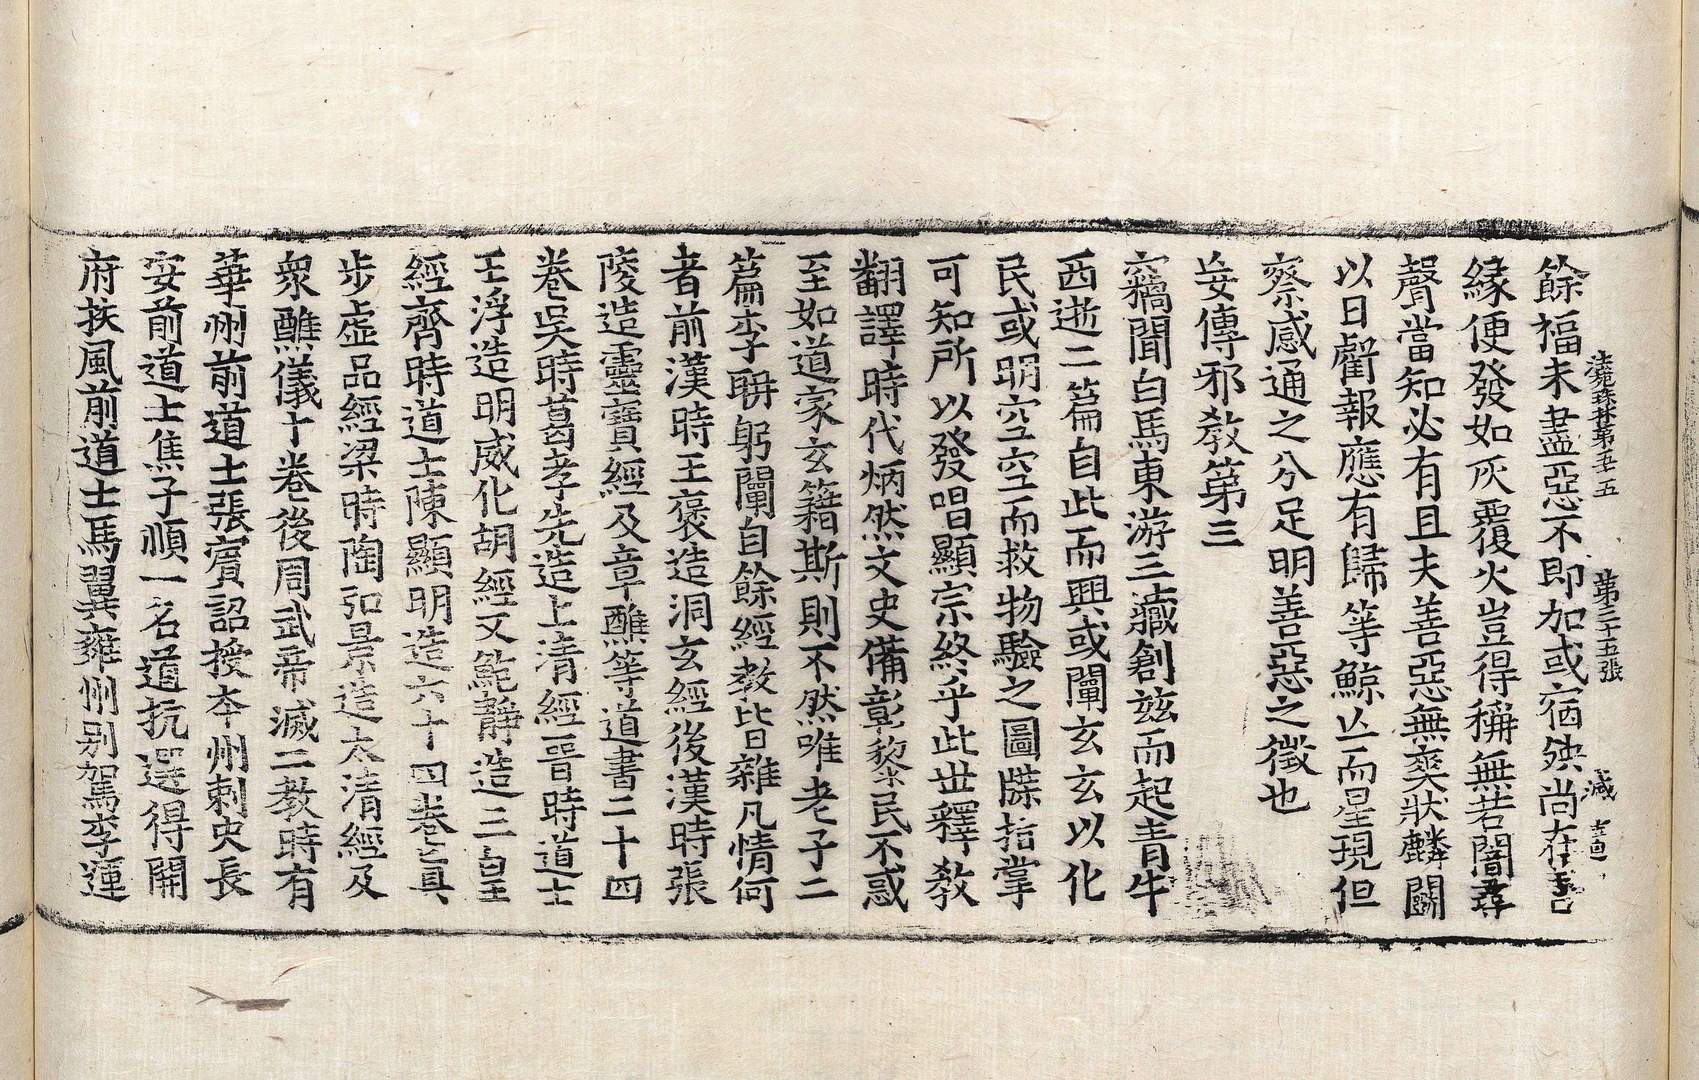 法苑珠林第五五 第三十五張 減
餘福未盡惡不即加或宿殃尚在善
緣便發如灰覆火豈得稱無若闇尋
聲當知必有且夫善惡無爽狀麟鬪
以日虧報應有歸等鯨亾而星現但
察感通之分足明善惡之徵也
妄傳邪教第三
竊聞白馬東游三藏創兹而起青牛
西逝二篇自此而興或闡玄玄以化
民或明空空而救物驗之圖牒指掌
可知所以發唱顯宗終乎此世釋教
翻譯時代炳然文史備彰黎民不惑
至如道家玄籍斯則不然唯老子二
篇李子聃躬闡自餘經教皆雜凡情何
者前漢時王褒造洞玄經後漢時張
陵造靈寶經及章醮等道書二十四
卷吳時葛孝先造上清經晋時道士
王浮造明威化胡經又鮑靜造三皇
經齊時道士陳顯明造六十四卷真
步虛品經梁時陶弘景造太清經及
衆醮儀十卷後周武帝滅二教時有
華州前道士張賓詔授本州刺史長
安前道士焦子順一名道抗選得開
府扶風前道士馬翼雍州别駕李運